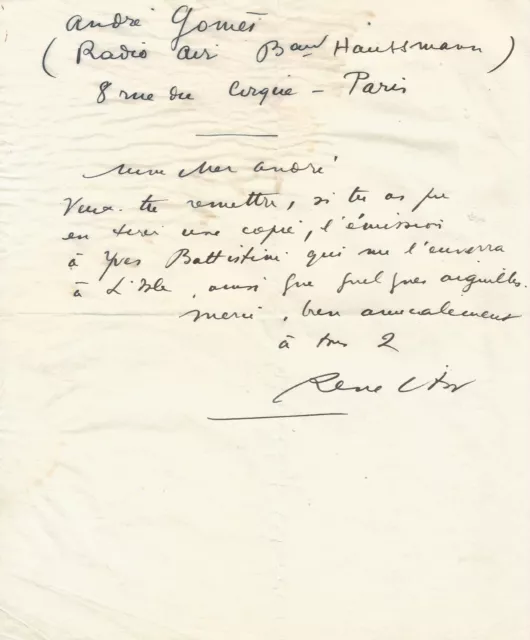 André Gomès
(Radio Air Bard Haussmann)
8 rue du Cirque - Paris
mon cher André
Veux-tu remettre, si tu as pu
en tirer une copie, l'émission
à Yves Battistini qui me l'enverra
à L'Isle, ainsi que quelques aiguilles.
merci, bien amicalement
à tous 2
René Char